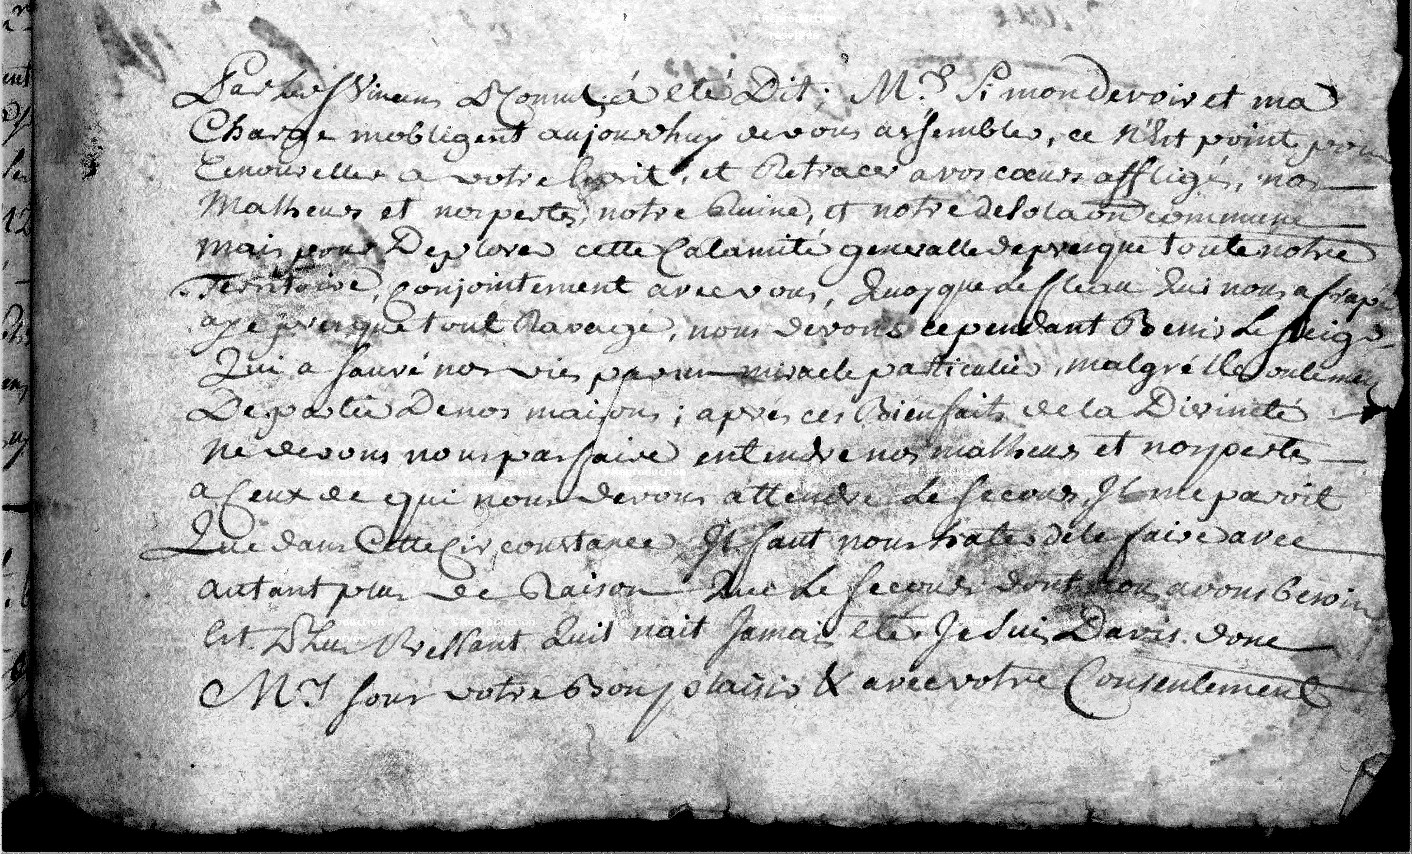 Par led Vincens 1r Consul, á été Dit; Mrs. Si mon Devoir et ma
Charge mobligent aujourdhuy de vous assembler, ce n'Est point pour
Renouveller a votre Esprit, et Retracer a vos cœurs affligés, nos
Malheurs et nos pertes, notre Ruine, et notre desolaon commune
mais pour Deplorer cette Calamité generalle de presque toute notre
Territoire, Conjointement avec vous, Quoyque le fleau Qui nous a frapé
aye presque tout Ravagé, nous devons cependant Benir Le Seigr
Qui a sauvé nos vies par un miracle particulier, malgré lle
De partie De nos maisons; aprés ces Bienfaits de la Divineté
Ne devons nous pas faire entendre nos malheurs et nos pertes
a Ceux de qui nous devons attendre Le secours, Il me paroit
Que dans Cette Circonstance Il faut nous hater de le faire avec
autant plus de Raison Que Le secours dont nous avons besoin
Est Plus Pressant Quil nait Jamais eté. Je Suis Davis donc
Mrs sous votre Bon plaisir & avec votre Consentement